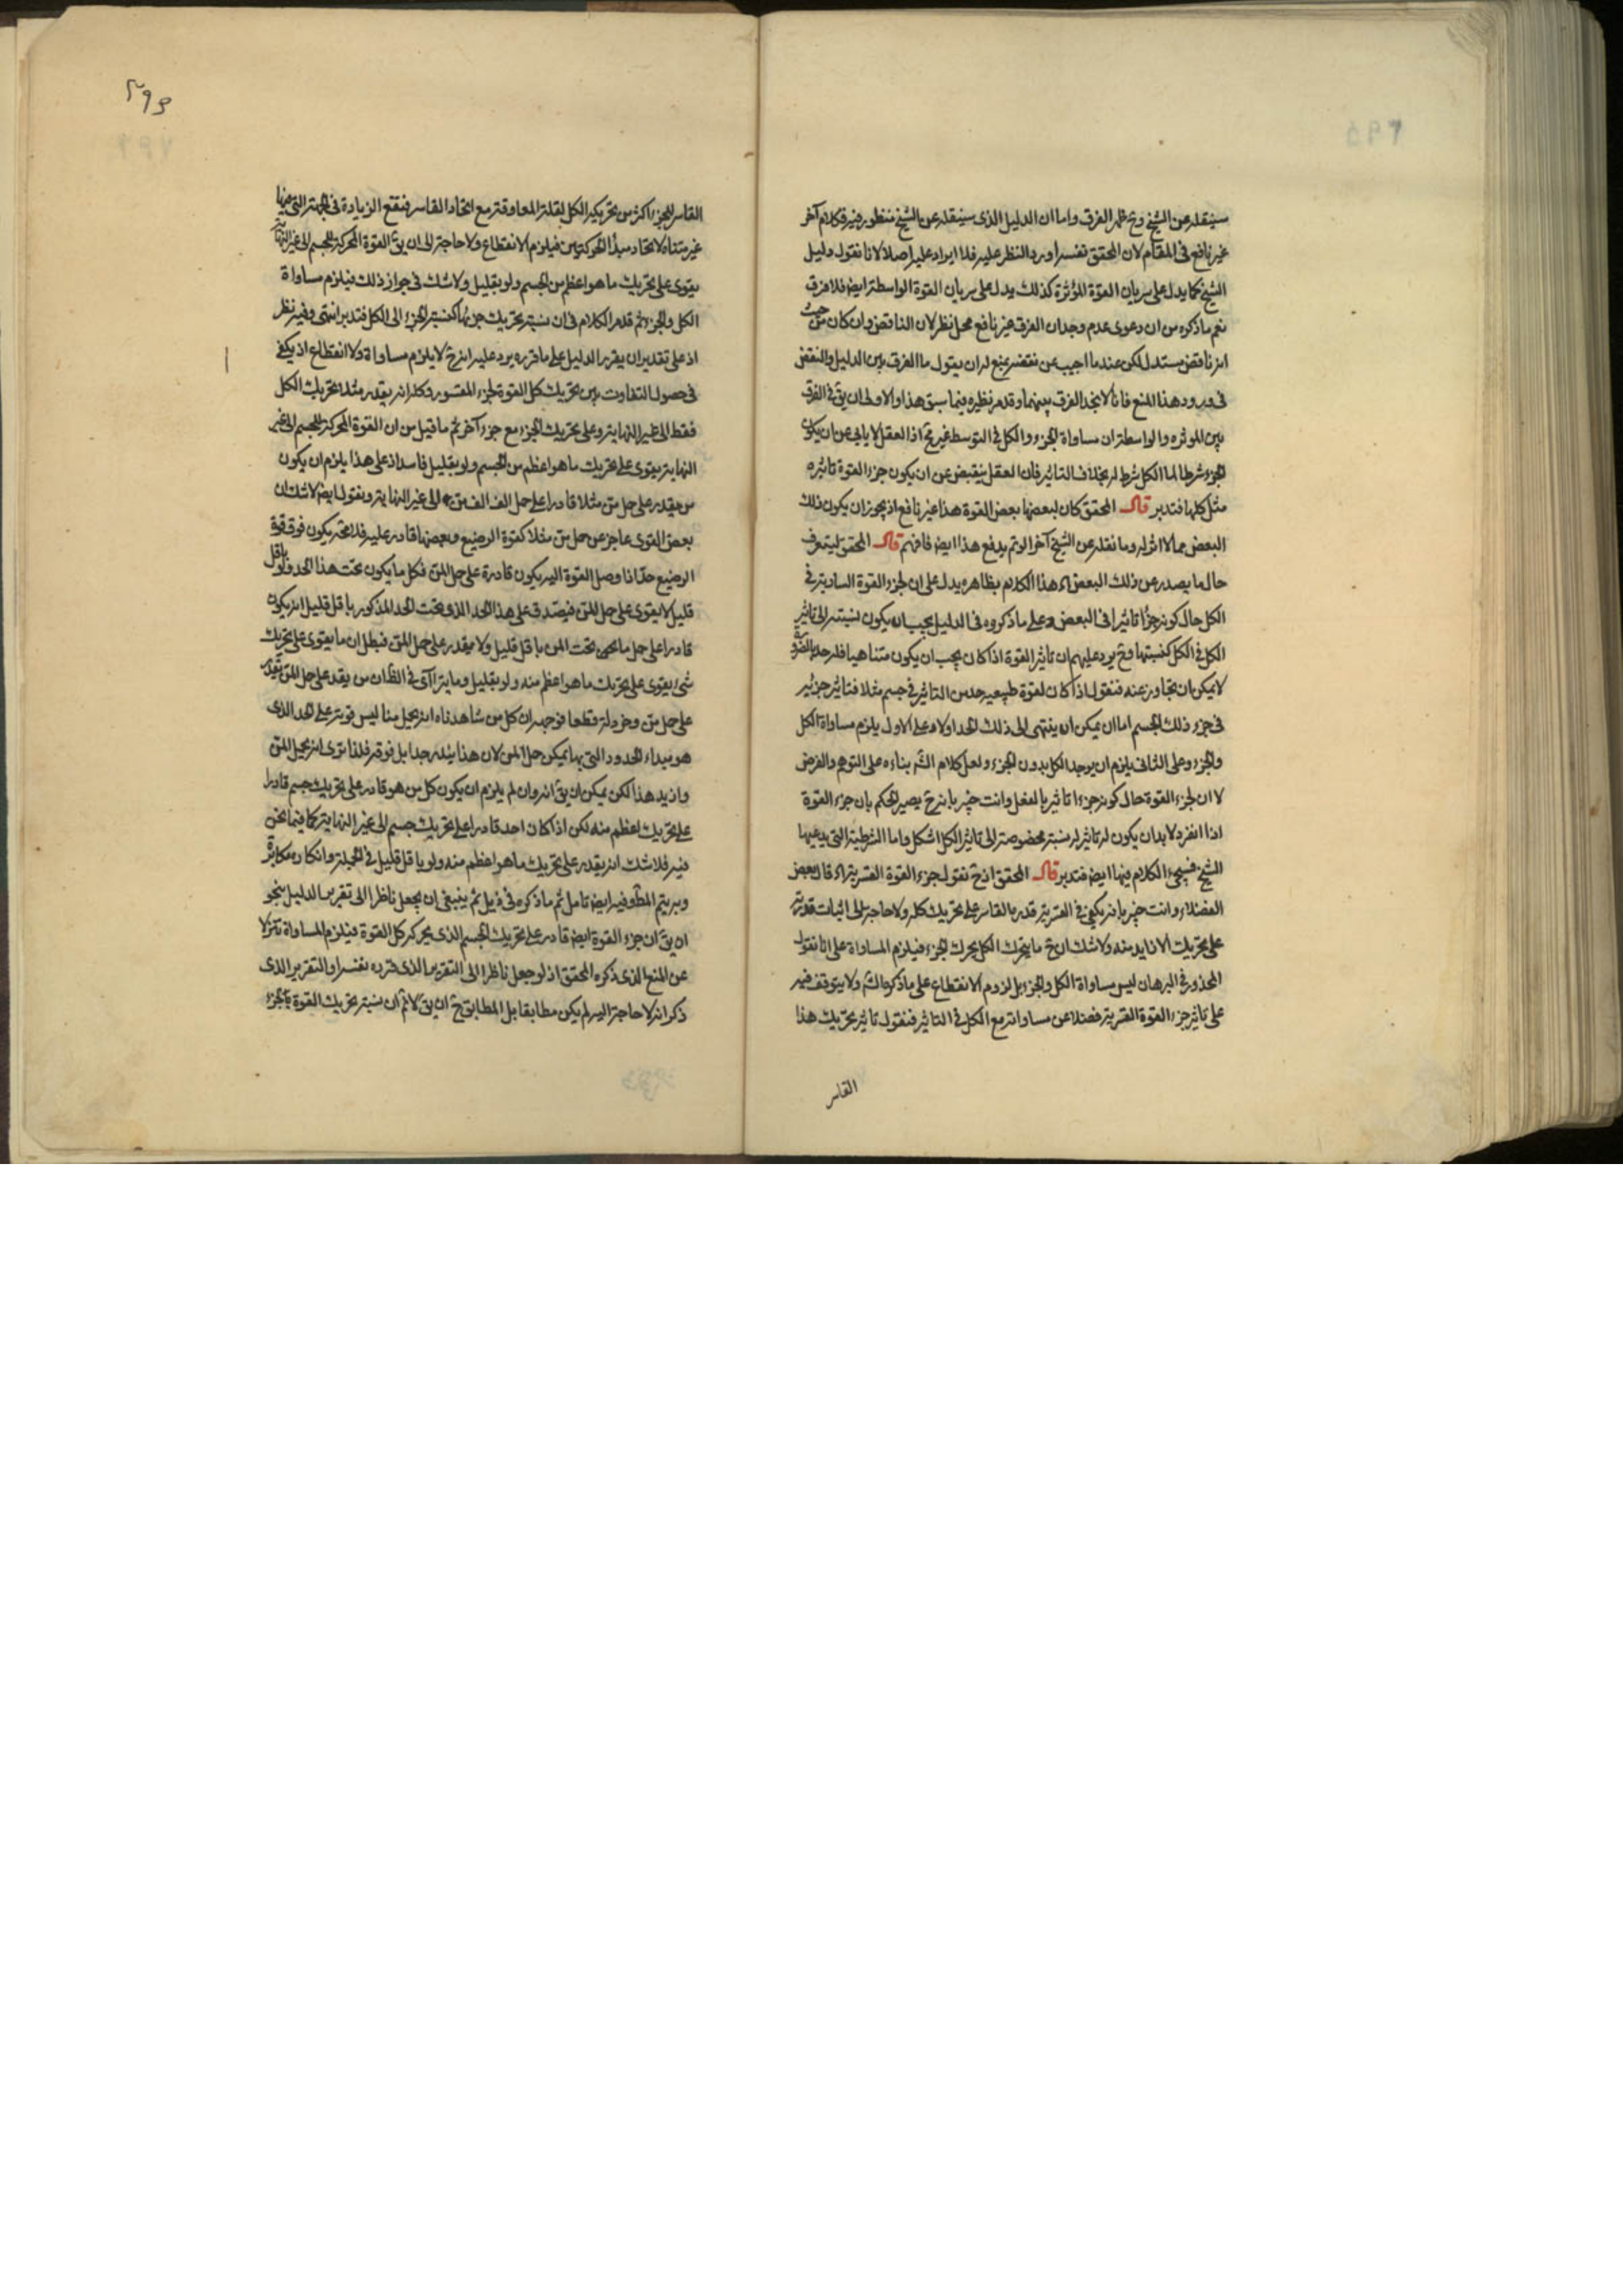 سينقله عن الشيخ وح ظهر الفرق واما ان الدليل الذى سينقله عن الشيخ منظور فيه فكلام آخر
غير نافع فى المقام لان المحقق نفسه اورد النظر عليه فلا ايراد عليه اصلا لانا نقول دليل
الشيخ كما يدل على سريان القوة المؤثرة كذلك يدل على سريان القوة الواسطة ايض فلا فرق
نعم ما ذكره من ان دعوى عدم وجدان الفرق غير نافع محل نظر لان الناقض وان كان من حيث
انه ناقض مستدل لكن عند ما اجيب عن نقضه بمنع له ان يقول ما الفرق بين الدليل والنقض
فى ورود هذا المنع فانا لا نجد الفرق بينهما وقد مر نظيره فيما سبق هذا والاولى ان يق فى الفرق
بين المؤثره والواسطة ان مساواة الجزء والكل فى التوسط غير مح اذ العقل لا يابى عن ان يكون
الجزء شرطا لما الكل شرط له بخلاف التاثير فان العقل ينقبض عن ان يكون جزء القوة تاثيره
مثل كلها فتدبر قال المحقق كان لبعضها بعض القوة هذا غير نافع اذ يجوز ان يكون ذلك
البعض مما لا اثر له وما نقله عن الشيخ آخرا لو تم يدفع هذا ايض فافهم قال المحقق ليتعرف
حال ما يصدر عن ذلك البعض اه هذا الكلام بظاهره يدل على ان لجزء القوة السارية فى
الكل حال كونه جزءا تاثيرا فى البعض وعلى ما ذكروه فى الدليل يجب ان يكون نسبته الى تاثير
الكل فى الكل كنسبتها وح يرد عليهم ان تاثير القوة اذا كان يجب ان يكون متناهيا فله حد بالضرورة
لا يمكن ان يتجاوز عنه فنقول اذا كان لقوة طبيعية حد من التاثير فى جسم مثلا فتاثير جزئه
فى جزء ذلك الجسم اما ان يمكن ان ينتهى الى ذلك الحد اولا وعلى الاول يلزم مساواة الكل
والجزء وعلى الثانى يلزم ان يوجد الكل بدون الجزء ولعل كلام الش بناءه على التوهم والفرض
لا ان لجزء القوة حال كونه جزءا تاثير بالفعل وانت خبير بانه ح يصير الحكم بان جزء القوة
اذا انفرد لابد ان يكون له تاثير له نسبة مخصوصة الى تاثير الكل اشكل واما الشرطية التى يدعيها
الشيخ فسيجىء الكلام فيها ايض فتدبر قال المحقق اذ ح نقول جزء القوة القسرية اه قال بعض
الفضلاء وانت خبير بانه يكفى فى القسرية قدر بالقاسر على تحريك كله ولا حاجة الى اثبات قدرته
على تحريك الازيد منه ولا شك ان ح ما يحرك الكل يحرك الجزء فيلزم المساواة على انا نقول
المحذور فى البرهان ليس مساواة الكل والجزء بل لزوم الانقطاع على ما ذكره الش ولا يتوقف فيه
على تاثير جزء القوة القسرية فضلا عن مساواته مع الكل فى التاثير فنقول تاثير تحريك هذا
القاسر
القاسر للجزء اكثر من تحريكه الكل لقلة المعاوقة مع اتحاد القاسر فتقع الزيادة فى الجهة التى فيها
غير متناه لاتحاد مبدأ الحركتين فيلزم الانقطاع ولا حاجة الى ان يق القوة المحركة للجسم الى غير النهاية
يقوى على تحريك ما هو اعظم من الجسم ولو بقليل ولا شك فى جواز ذلك فيلزم مساواة
الكل والجزء ثم قد مر الكلام فى ان نسبة تحريك جزئها كنسبة الجزء الى الكل فتدبر انتهى وفيه نظر
اذ على تقدير ان يقرر الدليل على ما قرره يرد عليه انه ح لا يلزم مساواة ولا انقطاع اذ يكفى
فى حصول التفاوت بين تحريك كل القوة لجزء المقسور وكله انه يقدر مثلا تحريك الكل
فقط الى غير النهاية وعلى تحريك الجزء مع جزء آخر ثم ما قيل من ان القوة المحركة للجسم الى غير
النهاية يقوى على تحريك ما هو اعظم من الجسم ولو بقليل فاسد اذ على هذا يلزم ان يكون
من يقدر على حمل من مثلا قادرا على حمل الف الف من الى غير النهاية ونقول ايض لا شك ان
بعض القوى عاجز عن حمل من مثلا كقوة الرضيع وبعضها قادر عليه فلا محة يكون فوق قوة
الرضيع حد اذا وصل القوة اليه يكون قادرة على حمل المن فكل ما يكون تحت هذا الحد ولو باقل
قليل لا يقوى على حمل المن فيصدق على هذا الحد الذى تحت الحد المذكور باقل قليل انه يكون
قادرا على حمل ما تحت المن باقل قليل ولا يقدر على حمل المن فبطل ان ما يقوى على تحريك
شىء يقوى على تحريك ما هو اعظم منه ولو بقليل وما يتراآى فى الظ ان من يقدر على حمل المن يقدر
على حمل من وخردلة قطعا فوجهه ان كل من شاهدناه انه يحمل منا ليس قوته على الحد الذى
هو مبداء الحدود التى بها يمكن حمل المن لان هذا يندر جدا بل فوقه فلذا ترى انه يحمل المن
وازيد هذا لكن يمكن ان يق انه وان لم يلزم ان يكون كل من هو قادر على تحريك جسم قادرا
على تحريك اعظم منه لكن اذا كان احد قادرا على تحريك جسم الى غير النهاية كما فيما نحن
فيه فلا شك انه يقدر على تحريك ما هو اعظم منه ولو باقل قليل فى الجملة وانكاره مكابرة
وبه يتم المط وفيه ايض تامل ثم ما ذكره فى ذيل ثم ينبغى ان يجعل ناظرا الى تقرير الدليل بنحو
ان يق ان جزء القوة ايض قادر على تحريك الجسم الذى يحركه كل القوة فيلزم المساواة تنزلا
عن المنع الذى ذكره المحقق اذ لو جعل ناظرا الى التقرير الذى قرره نفسه او التقرير الذى
ذكر انه لا حاجة اليه لم يكن مطابقا بل المطابق ح ان يق لا نم ان نسبة تحريك القوة بالجزء